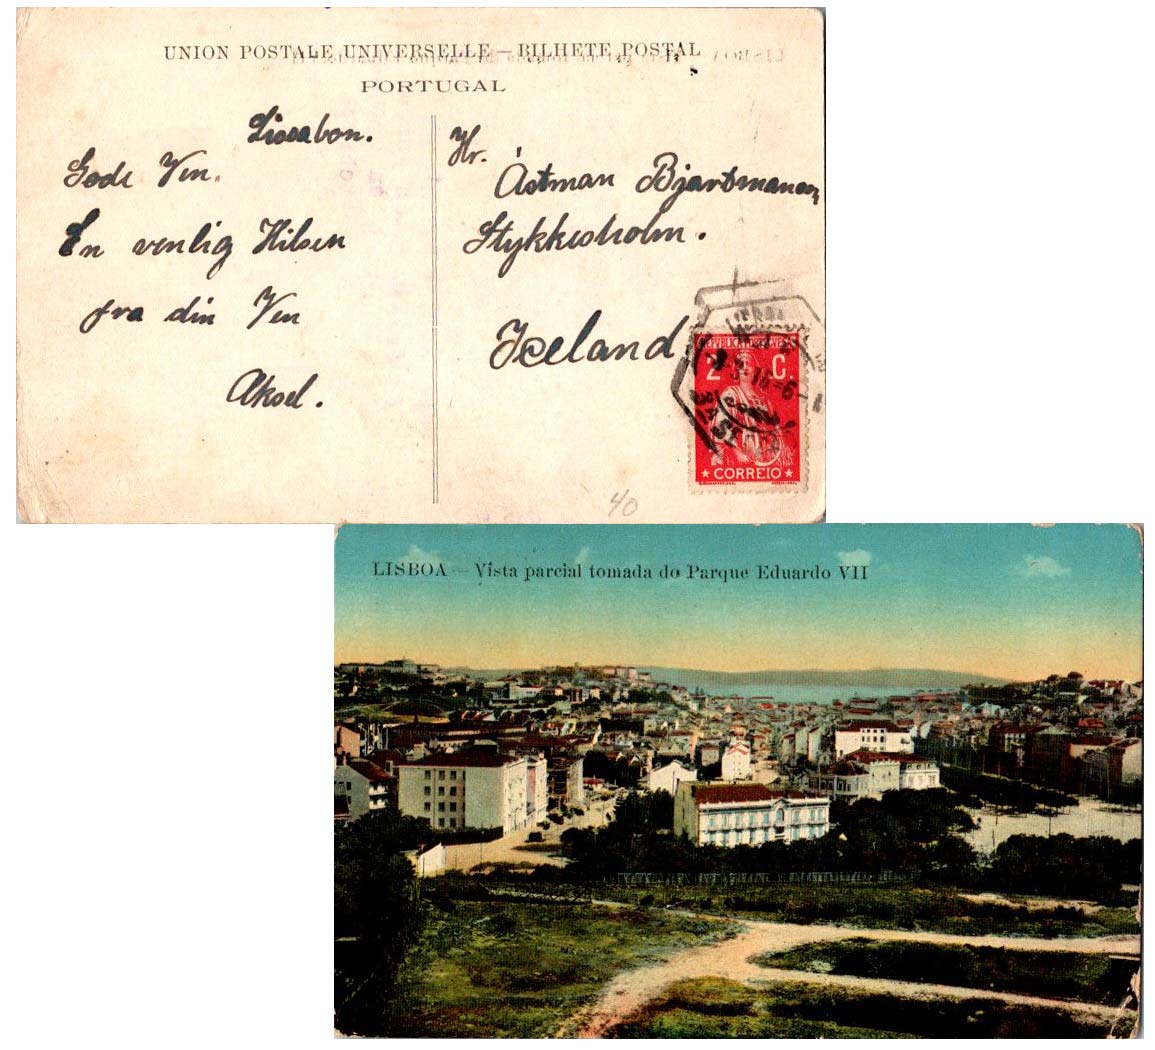 UNION POSTALE UNIVERSELLE — BILHETE POSTAL
PORTUGAL
Lissabon.
Gode Ven.
En venlig Hilsen
fra din Ven
Aksel.
Hr.
Ástman Bjartmansen
Stykkesholm.
Iceland
2 C.
CORREIO
40
LISBOA — Vista parcial tomada do Parque Eduardo VII